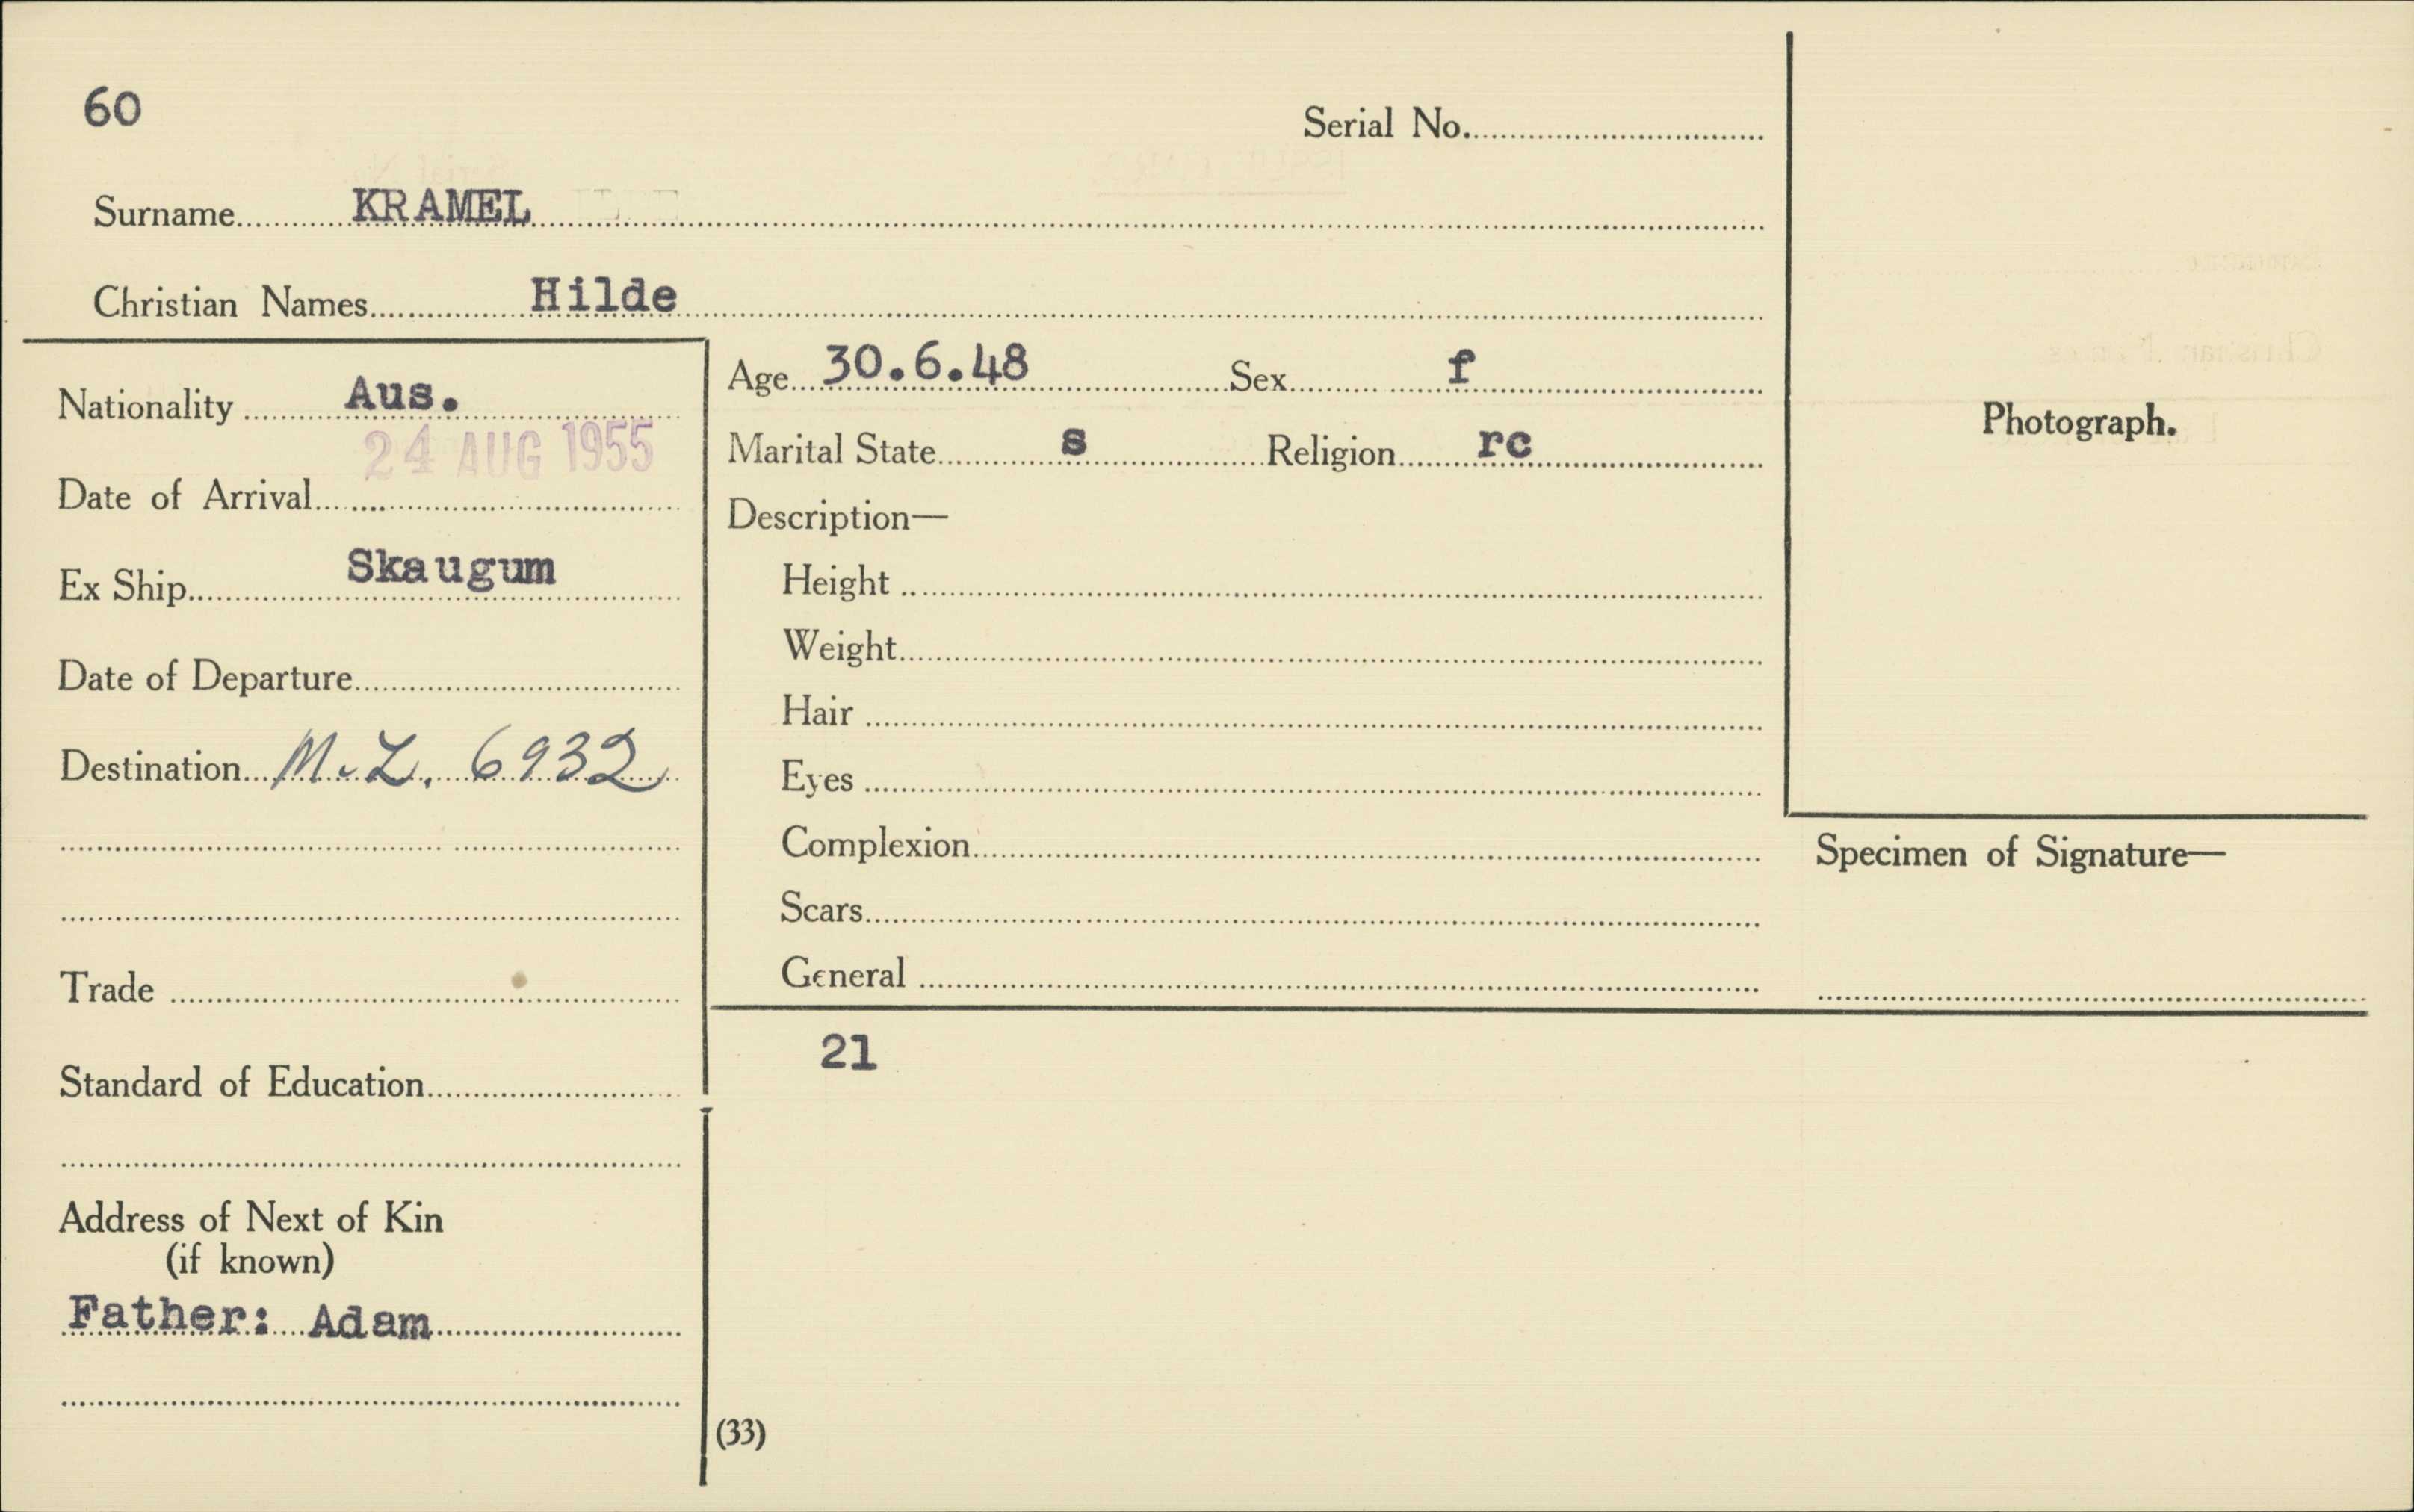 60
Serial No.
Surname KRAMEL
Christian Names Hilde
Nationality Aus.
24 AUG 1955
Date of Arrival
Ex Ship Skaugum
Date of Departure
Destination M.L. 6932
Trade
Standard of Education
Address of Next of Kin
(if known)
Father: Adam
Age 30.6.48 Sex f
Marital State s Religion rc
Description—
Height
Weight
Hair
Eyes
Complexion
Scars
General
21
(33)
Photograph.
Specimen of Signature—